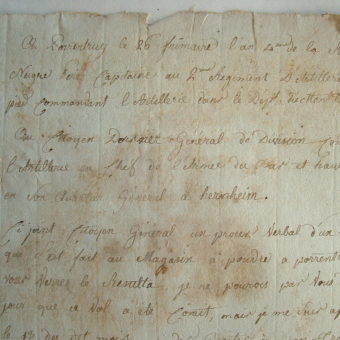 A Porrentruy le 26 frimaire l'an 4me de la
Capitaine au 2me Regiment D'Artillerie
Commandant l'Artillerie dans le Dept du
Au Citoyen Dorsner Général de Division
l'Artillerie en Chef de l'Armée du et haut
en son Quartier Général à herrnheim.
Ci joint Citoyen Général un procès Verbal d'un
qui s'est fait au Magasin à poudre a porrent
vous Verrez le Resulta, je ne pourois pas vous
jour que ce Vol a été Comit, mais je me suis ap
le 13 du dit mois